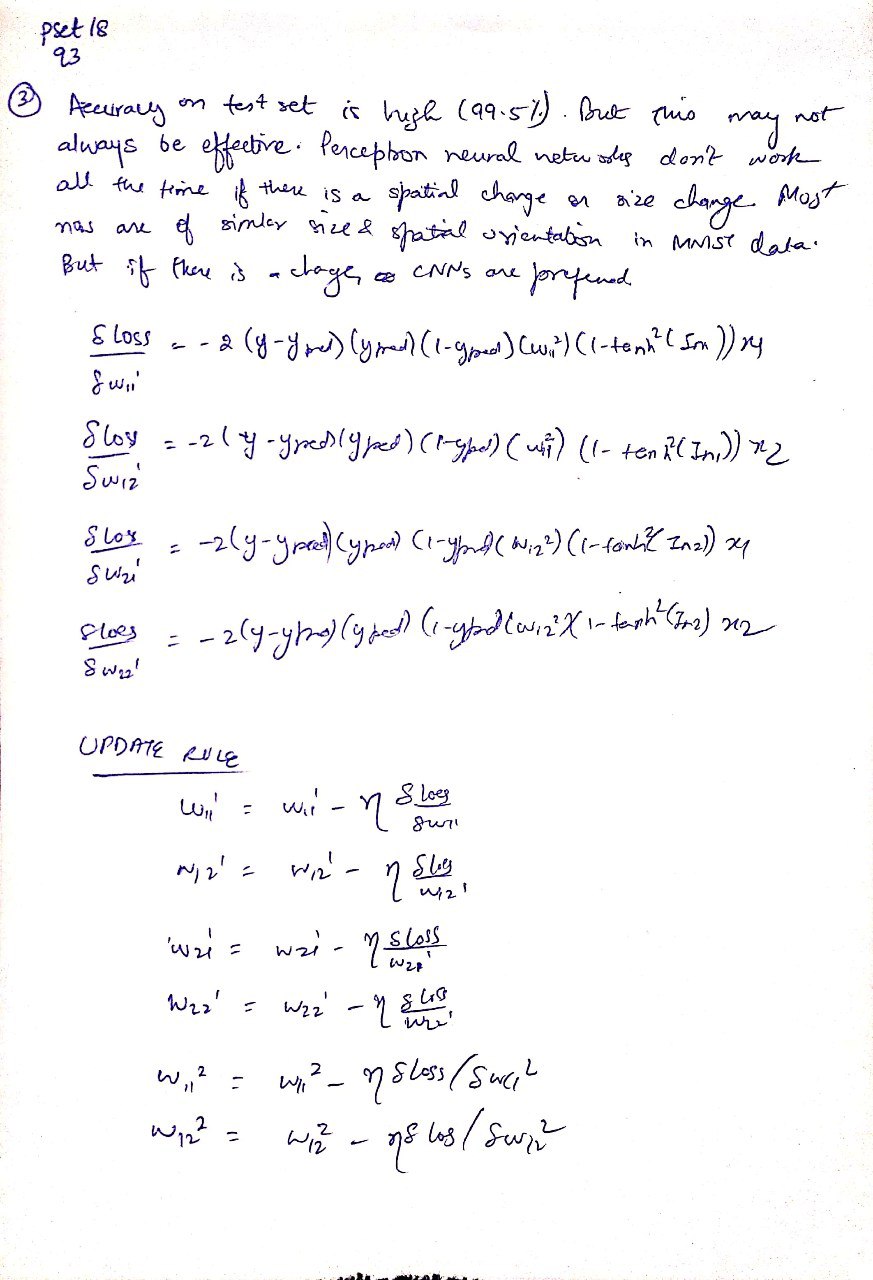 pset 18
q3
③ Accuracy on test set is high (99.5%). But this may not
always be effective. Perceptron neural networks don't work
all the time if there is a spatial change or size change. Most
nos are of similar size & spatial orientation in MNIST data.
But if there is a change, CNNs are preferred
δ loss / δ w₁₁' = -2 (y-ypred) (ypred) (1-ypred) (w₁₁²) (1-tanh²(In₁)) x₁
δ loss / δ w₁₂' = -2 (y-ypred) (ypred) (1-ypred) (w₁₁²) (1-tanh²(In₁)) x₂
δ loss / δ w₂₁' = -2(y-ypred) (ypred) (1-ypred) (w₁₂²) (1-tanh²(In₂)) x₁
δ loss / δ w₂₂' = -2(y-ypred) (ypred) (1-ypred) (w₁₂²)(1-tanh²(In₂)) x₂
UPDATE RULE
w₁₁' = w₁₁' - η δ loss / δw₁₁
w₁₂' = w₁₂' - η δ loss / w₁₂'
w₂₁' = w₂₁' - η δ loss / w₂₁'
w₂₂' = w₂₂' - η δ loss / w₂₂'
w₁₁² = w₁₁² - η δ loss / δw₁₁²
w₁₂² = w₁₂² - η δ los / δw₁₂²